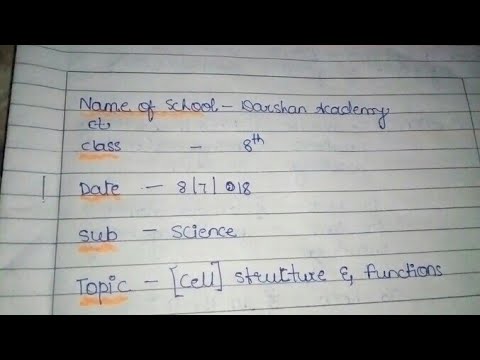 Name of School - Darshan Academy
ct
class - 8th
Date - 8/7/018
Sub - Science
Topic - [Cell] Structure & functions